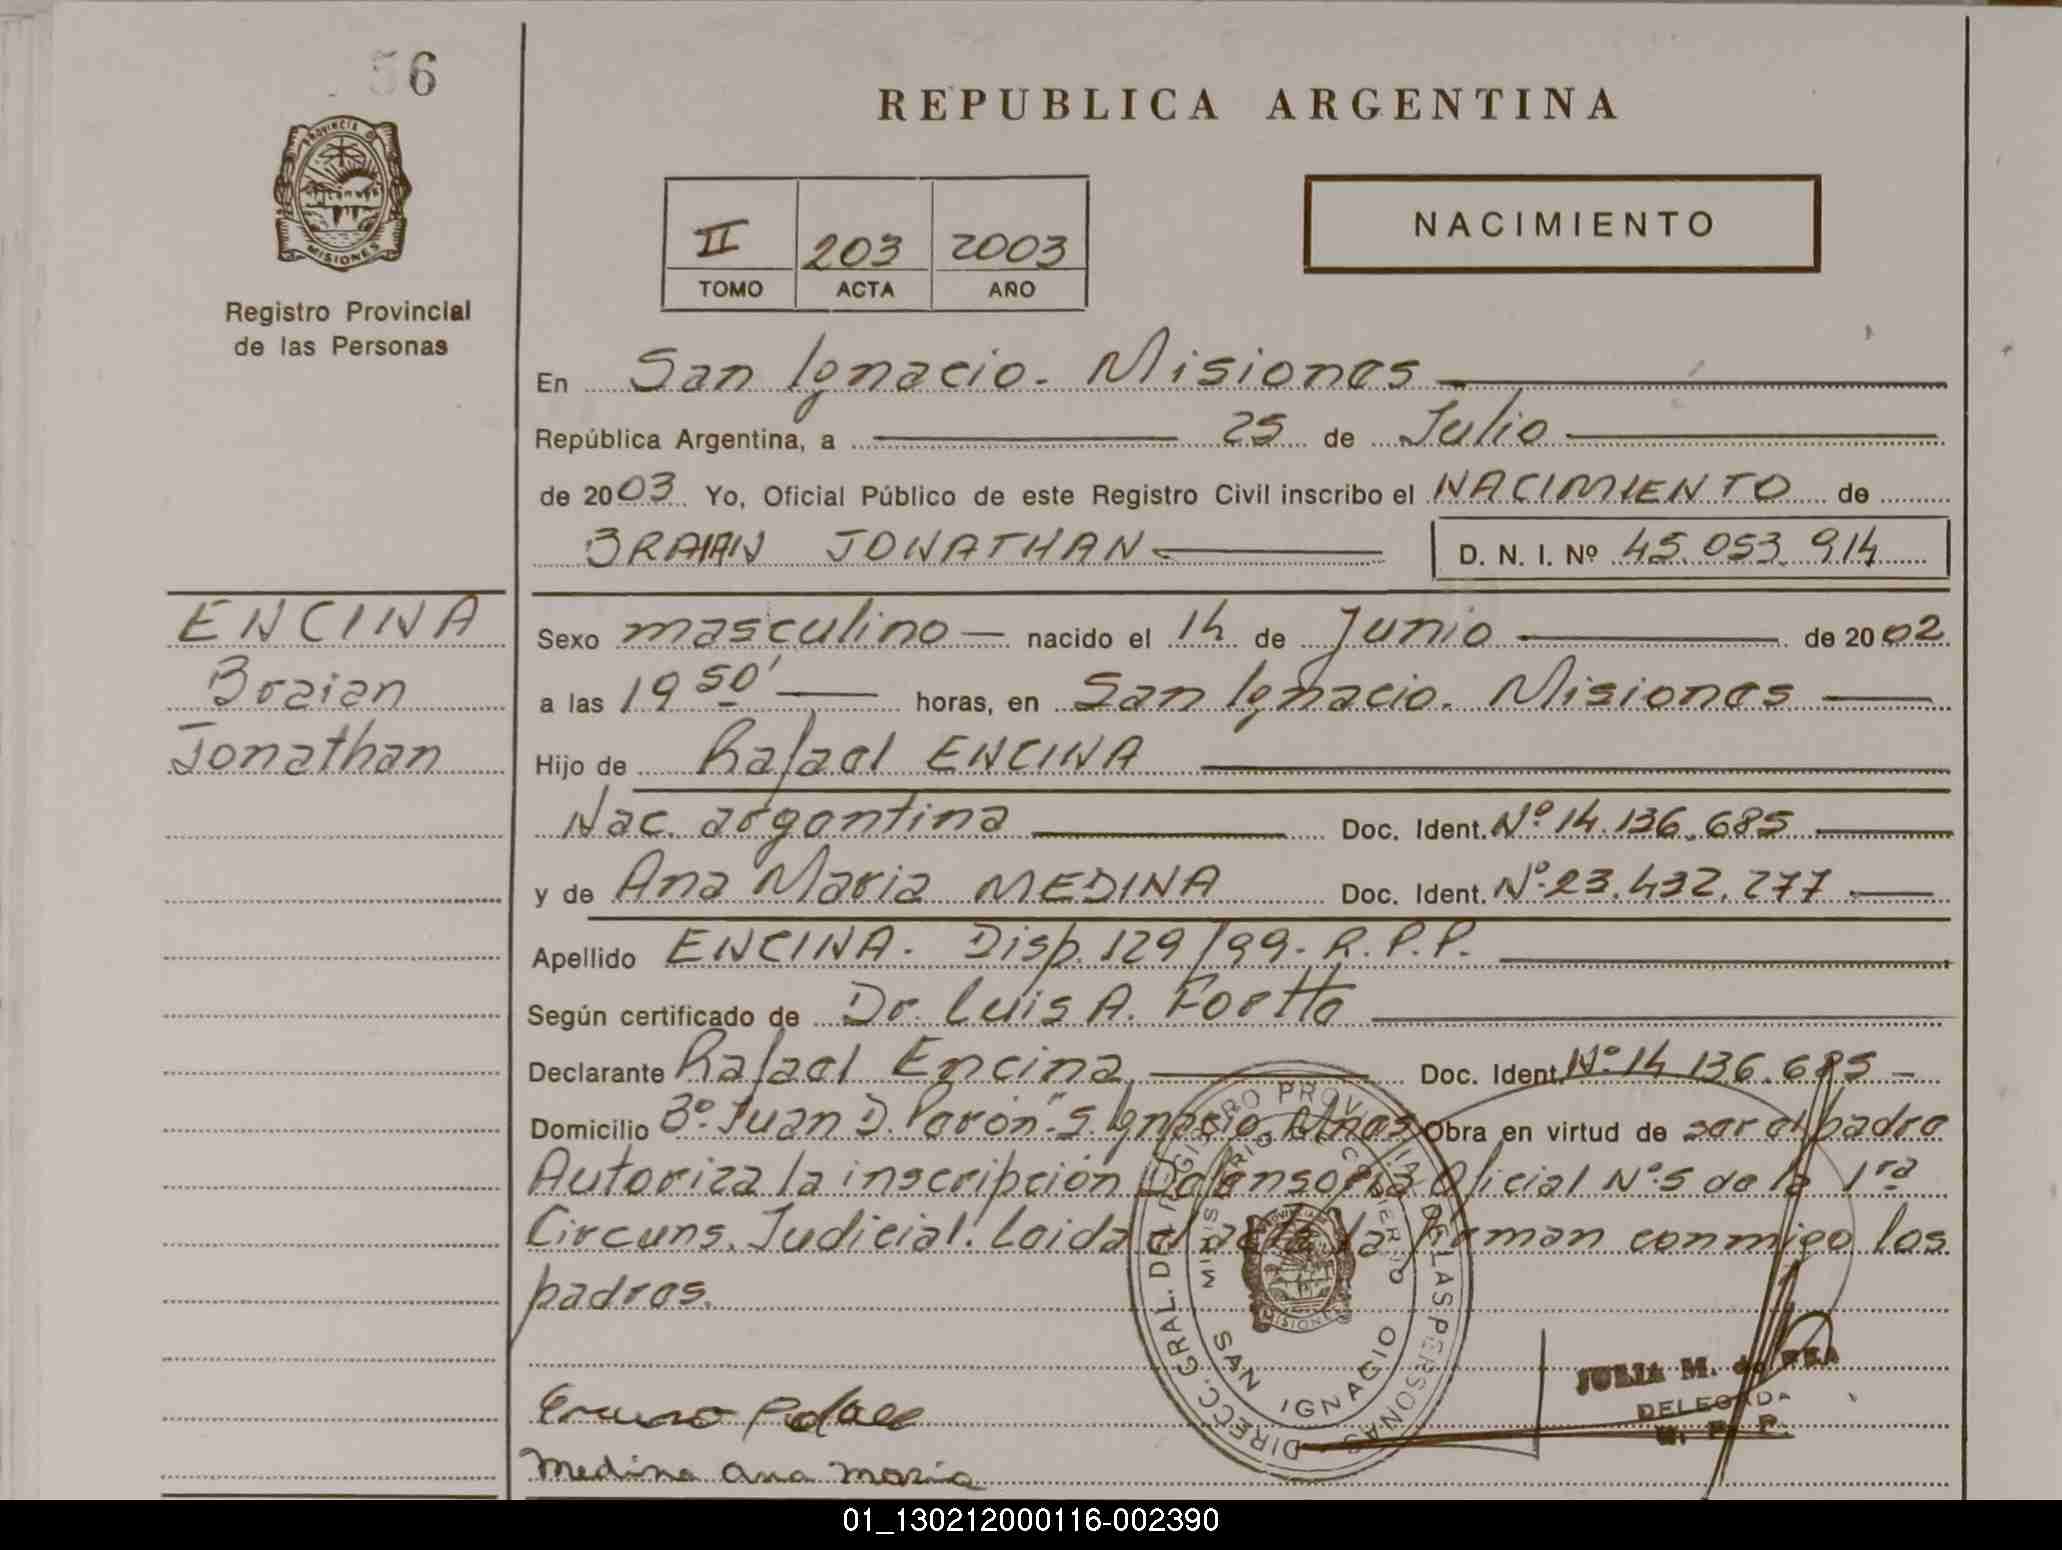 56
REPUBLICA ARGENTINA
PROVINCIA D MISIONES
II 203 2003
TOMO ACTA AÑO
NACIMIENTO
Registro Provincial
de las Personas
En San Ignacio. Misiones
República Argentina, a 25 de Julio
de 2003 Yo, Oficial Público de este Registro Civil inscribo el NACIMIENTO de
BRAIAN JONATHAN D. N. I. Nº 45.053.914
ENCINA
Braian
Jonathan
Sexo masculino nacido el 14 de Junio de 2002
a las 19 50' horas, en San Ignacio. Misiones
Hijo de Rafael ENCINA
Nac. argentina Doc. Ident. Nº 14.136.685
y de Ana Maria MEDINA Doc. Ident. Nº 23.432.277
Apellido ENCINA. Disp. 129/99. R.P.P.
Según certificado de Dr. Luis A.
Declarante Rafael Encina Doc. Ident. Nº 14 136.685
Domicilio Bº "Juan D. Perón". S. Ignacio. Mnes Obra en virtud de ser el padre
Autoriza la inscripción Defensoria Oficial Nº 5 de la 1ra
Circuns. Judicial. Leida el acta la firman conmigo los
padres.
DIRECC. GRAL. DEL REGISTRO PROV. DE LAS PERSONAS
MINISTERIO DE GOBIERNO
SAN IGNACIO
MISIONES
JULIA M. de REA
DELEGADA
R. P. P.
Medina Ana Maria
01_130212000116-002390